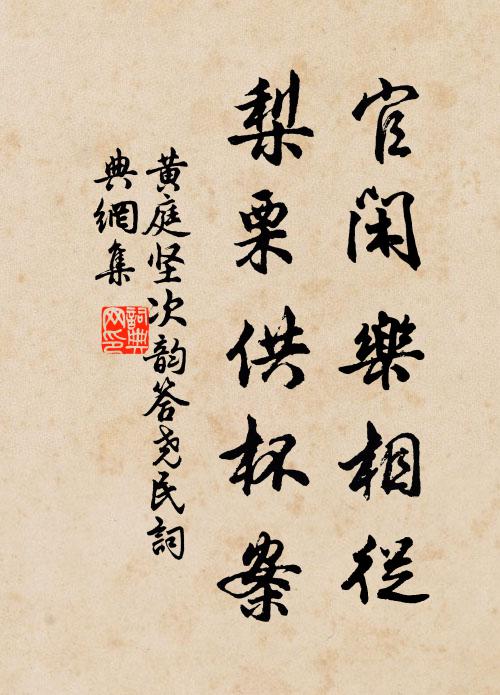 官閑樂相從
梨栗供杯案
黄庭坚次韵答尧民詞
典網集
詞典
网印